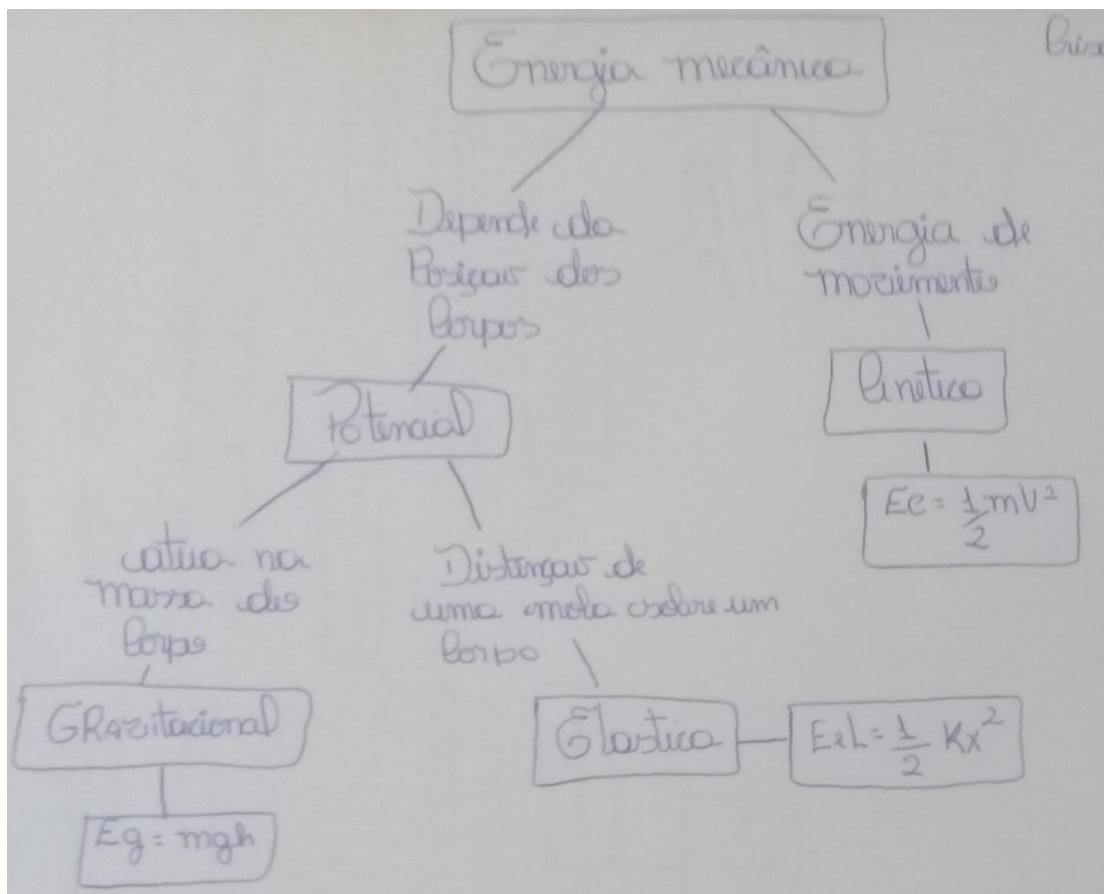 Energia mecânica
Depende da
Posiçao dos
Corpos
Energia de
movimento
Potencial
Cinetica
Ec = 1/2 mV²
atua na
massa do
Corpo
Distenção de
uma mola sobre um
Corpo
GRavitacional
Elastica
EeL = 1/2 Kx²
Eg = mgh